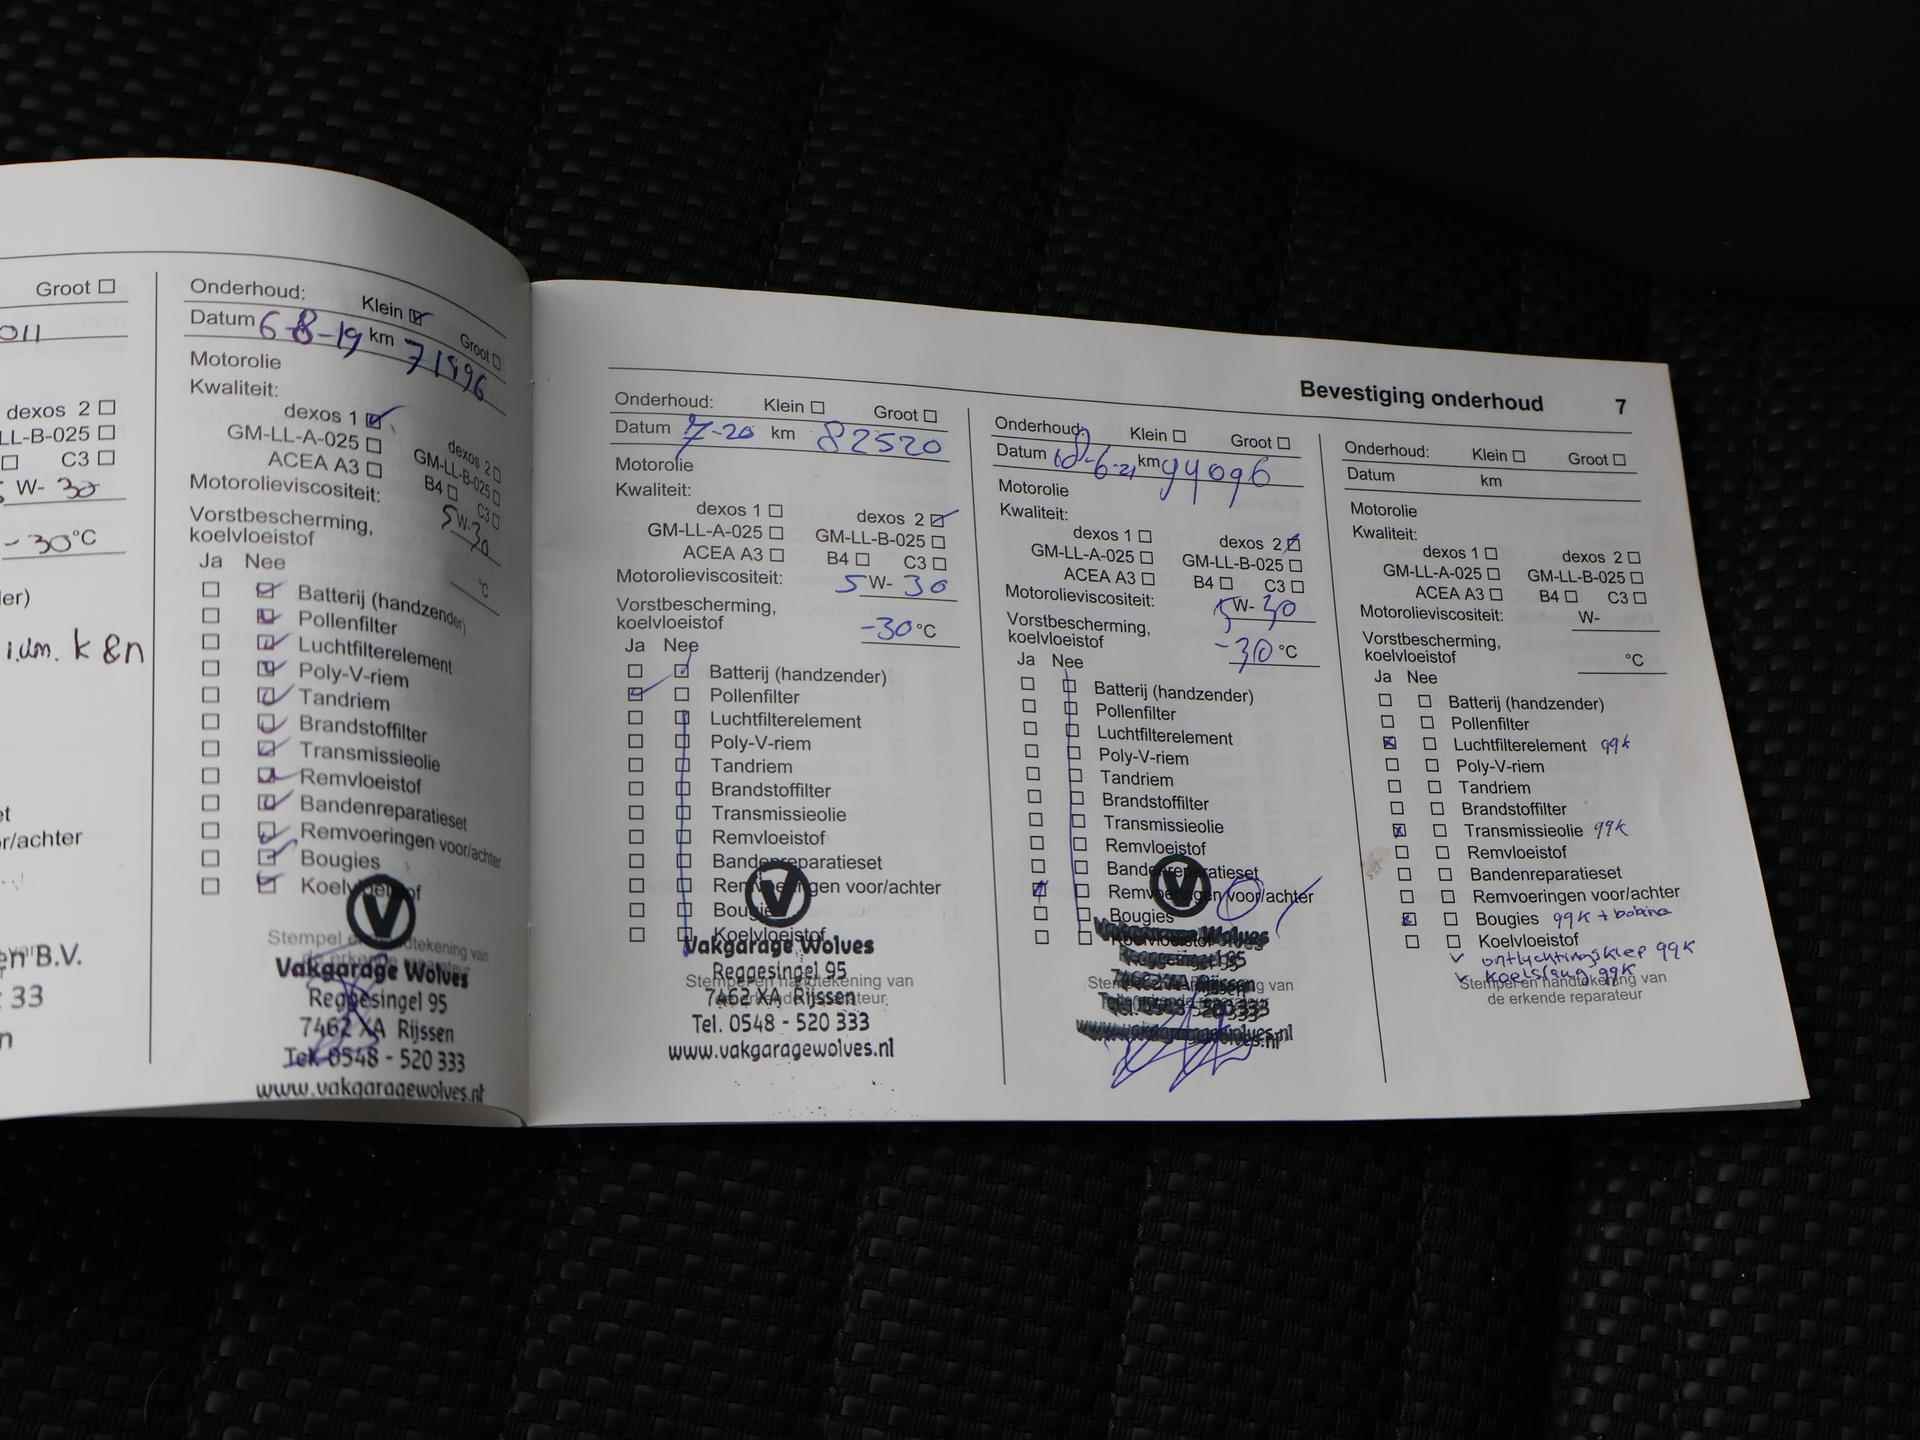 Groot
011
dexos 2
LL-B-025
C3
W- 30
-30°C
i.v.m. k&n
r/achter
n B.V.
33
Onderhoud: Klein Groot
Datum 6-8-19 km 71996
Motorolie
Kwaliteit:
dexos 1 dexos 2
GM-LL-A-025 GM-LL-B-025
ACEA A3 B4 C3
Motorolieviscositeit: 5W-30
Vorstbescherming,
koelvloeistof °C
Ja Nee
Batterij (handzender)
Pollenfilter
Luchtfilterelement
Poly-V-riem
Tandriem
Brandstoffilter
Transmissieolie
Remvloeistof
Bandenreparatieset
Remvoeringen voor/achter
Bougies
Koelvloeistof
V
Stempel en handtekening van
Vakgarage Wolves
Reggesingel 95
7462 XA Rijssen
Tel. 0548 - 520 333
www.vakgaragewolves.nl
Bevestiging onderhoud 7
Onderhoud: Klein Groot
Datum 7-20 km 82520
Motorolie
Kwaliteit:
dexos 1 dexos 2
GM-LL-A-025 GM-LL-B-025
ACEA A3 B4 C3
Motorolieviscositeit: 5 W- 30
Vorstbescherming,
koelvloeistof -30°C
Ja Nee
Batterij (handzender)
Pollenfilter
Luchtfilterelement
Poly-V-riem
Tandriem
Brandstoffilter
Transmissieolie
Remvloeistof
Bandenreparatieset
Remvoeringen voor/achter
Bougies
Koelvloeistof
V
Vakgarage Wolves
Reggesingel 95
Stempel en handtekening van
7462 XA Rijssen
de erkende reparateur
Tel. 0548 - 520 333
www.vakgaragewolves.nl
Onderhoud: Klein Groot
Datum 18-6-21 km 94096
Motorolie
Kwaliteit:
dexos 1 dexos 2
GM-LL-A-025 GM-LL-B-025
ACEA A3 B4 C3
Motorolieviscositeit: 5W- 30
Vorstbescherming,
koelvloeistof -30°C
Ja Nee
Batterij (handzender)
Pollenfilter
Luchtfilterelement
Poly-V-riem
Tandriem
Brandstoffilter
Transmissieolie
Remvloeistof
Bandenreparatieset
Remvoeringen voor/achter
Bougies
Koelvloeistof
V
Vakgarage Wolves
Reggesingel 95
7462 XA Rijssen
Tel. 0548 - 520 333
www.vakgaragewolves.nl
Onderhoud: Klein Groot
Datum km
Motorolie
Kwaliteit:
dexos 1 dexos 2
GM-LL-A-025 GM-LL-B-025
ACEA A3 B4 C3
Motorolieviscositeit: W-
Vorstbescherming,
koelvloeistof °C
Ja Nee
Batterij (handzender)
Pollenfilter
Luchtfilterelement 99k
Poly-V-riem
Tandriem
Brandstoffilter
Transmissieolie 99k
Remvloeistof
Bandenreparatieset
Remvoeringen voor/achter
Bougies 99k + bobine
Koelvloeistof
ontluchtingsklep 99k
koelslang 99k
Stempel en handtekening van
de erkende reparateur